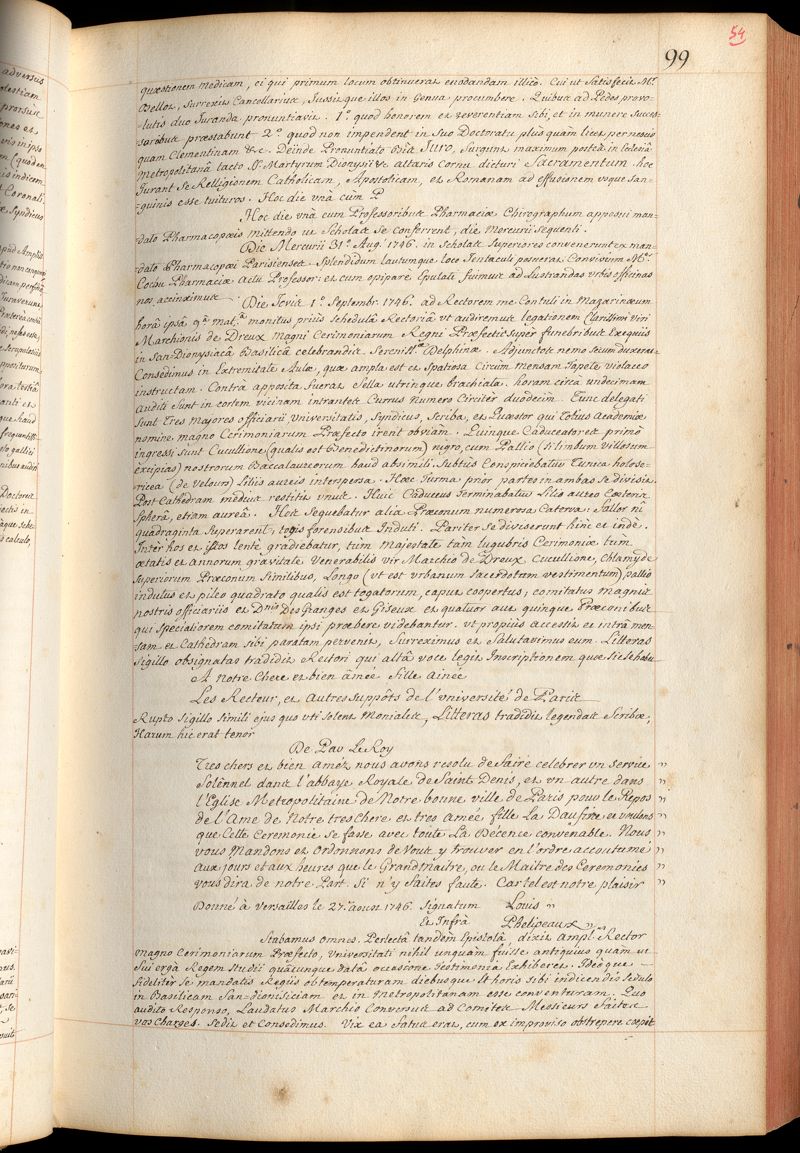 54
99
quæstionem medicam, ei qui primum locum obtinuerat enodandam illico. Cui ut satisfecit Mr.
Bellot, surrexit Cancellarius, Jussitque illos in Genua procumbere. Quibus ad Pedes provo-
lutis duo Juranda pronuntiavit. 1°. quod honorem et reverentiam sibi, et in munere succes-
soribus præstabunt 2°. quod non impendent in suo Doctoratu plus quàm licet per novis
quam Clementinam &c. Deinde Pronuntiato Juro, surgunt, maximum posteà in Ecclesiâ
Metropolitanâ tacto SS. Martyrum Dionysii &c altaris Cornu dicturi Sacramentum hoc
Jurant se Relligionem Catholicam, Apostolicam, et Romanam ad effusionem usque san-
guinis esse tuituros. Hoc die vnà cùm P
Hoc die vnà cum Professoribus Pharmaciæ Chirographum apposui man-
dato Pharmacopæis mittendo ut Scholas se conferrent, die Mercurii sequenti.
Die Mercurii 31a. Aug. 1746. in Scholas Superiores convenerunt ex man-
dato Pharmacopæi Parisienses. Splendidum lautumque loco Jentaculi posuerat Convivium Mr.
Cochu Pharmaciæ Actu Professor: et cum opiparè Epulati fuimus ad lustrandas vrbis officinas
nos accinximus
Die Jovis 1a. Septembr. 1746. ad Rectorem me Contuli in Magarinæum
horâ ipsâ 9a. mat.a monitus priùs schedulâ Rectoriâ vt audiremus legationem Clarissimi viri
Marchionis de Dreux magni Cerimoniarum Regni Præfecti super funebribus Exequiis
in San-Dionysiacâ Basilicâ celebrandis Sereniss.æ Delphinæ. Adjunctos nemo secum duxerat
Consedimus in Extremitate Aulæ, quæ ampla est et spatiosa Circum mensam Tapete violaceo
instructam. Contrà apposita fuerat Sella utrinque brachiata. horam circà undecimam
Auditi sunt in cortem vicinam intrantes Currus numero Circiter duodecim. Tunc delegati
sunt tres majores officiarii Universitatis, Syndicus, Scriba, et Quæstor qui totius Academiæ
nomine magno Cerimoniarum Præfecto irent obviam. Quinque Caduceatores primò
ingressi sunt Cucullione (qualis est Benedictinorum) nigro, cum Pallio (si limbum villosum
excipias) nostrorum Baccalaureorum haud absimili. Subtùs Conspiciebatur Tunica holose-
ricea (de velours) Liliis aureis interspersa. Hæc turma prior partes in ambas se divisit.
Post Cathedram medius restitit vnus. Huic Caduceus Terminabatur Lilio aureo Cœtera
Spherâ, etiam aureâ. Hos sequebatur alia Præconum numerosa Caterva: fallor ni
quadraginta superarent, togis forensibus Induti. Pariter se diviserunt hinc et indè.
Inter hos et illos lentè gradiebatur, tùm Majestate tam lugubris Cerimoniæ tùm
ætatis et annorum gravitate venerabilis vir Marchio de Dreux, Cucullione, Chlamyde
superiorum Præconum similibus, Longo (vt est vrbanum sacerdotum vestimentum) pallio
indutus et pileo quadrato qualis est togatorum, caput coopertus; comitatus magnis
nostris officiariis et Dnis Des Granges et Giseux et quatuor aut quinque Præconibus
qui specialiorem comitatum ipsi præbere videbantur. vt propiùs accessit et intrà men-
sam et Cathedram sibi paratam pervenit, surreximus et salutavimus eum. Litteras
sigillo obsignatas tradidit Rectori qui altâ voce legit Inscriptionem quæ sic se habet
A Notre Chere et bien âmée fille Ainée
Les Recteur, et Autres Suppôts de l'Université de Paris
Rupto sigillo simili ejus quo vti solent Moniales, Litteras tradidit legendas Scribæ,
Harum hic erat tenor
De Par Le Roy
Tres chers et bien Améz nous avons resolu de faire celebrer vn service „
Solennel dans l'abbaye Royale de Saint Denis, et vn autre dans „
l'Eglise Metropolitaine de Notre bonne ville de Paris pour le Repos „
de l'Ame de Notre tres Chere et tres Amée fille La Daufine et voulons „
que Cette Ceremonie se fasse avec toute La Décence convenable. Nous „
vous Mandons et Ordonnons de Vous y trouver en l'ordre accoutumé „
aux jours et aux heures que le Grand Maitre, ou le Maitre des Ceremonies „
vous dira de notre Part. Si n'y faites faute. Car tel est notre plaisir „
Donné à Versailles le 27. aoust 1746. Signatum Louis „
Et Infrà Phelipeaux „
Stabamus omnes. Perlectâ tandem Epistolâ dixit Ampl. Rector
magno Cerimoniarum Præfecto, Universitati nihil unquam fuisse antiquius quam ut
sui ergà Regem studii quâcunque datâ occasione Testimonia Exhiberet. Ideoque
fideliter se mandatis Regiis obtemperaturam diebusque et horis sibi indicendis sedulo
in Basilicam San-dionisiciam et in Metropolitanam esse conventuram. Quo
audito Responso, Laudatus Marchio Conversus ad Comites Messieurs faites
vos Charges. Sedit et Consedimus. Vix ea fatus erat, cum ex improviso obstrepere cœpit